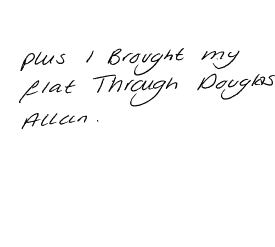 plus I Brought my
flat Through Douglas
Allan.